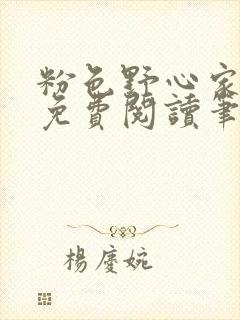 粉色野心家
免費閱讀筆
楊慶婉